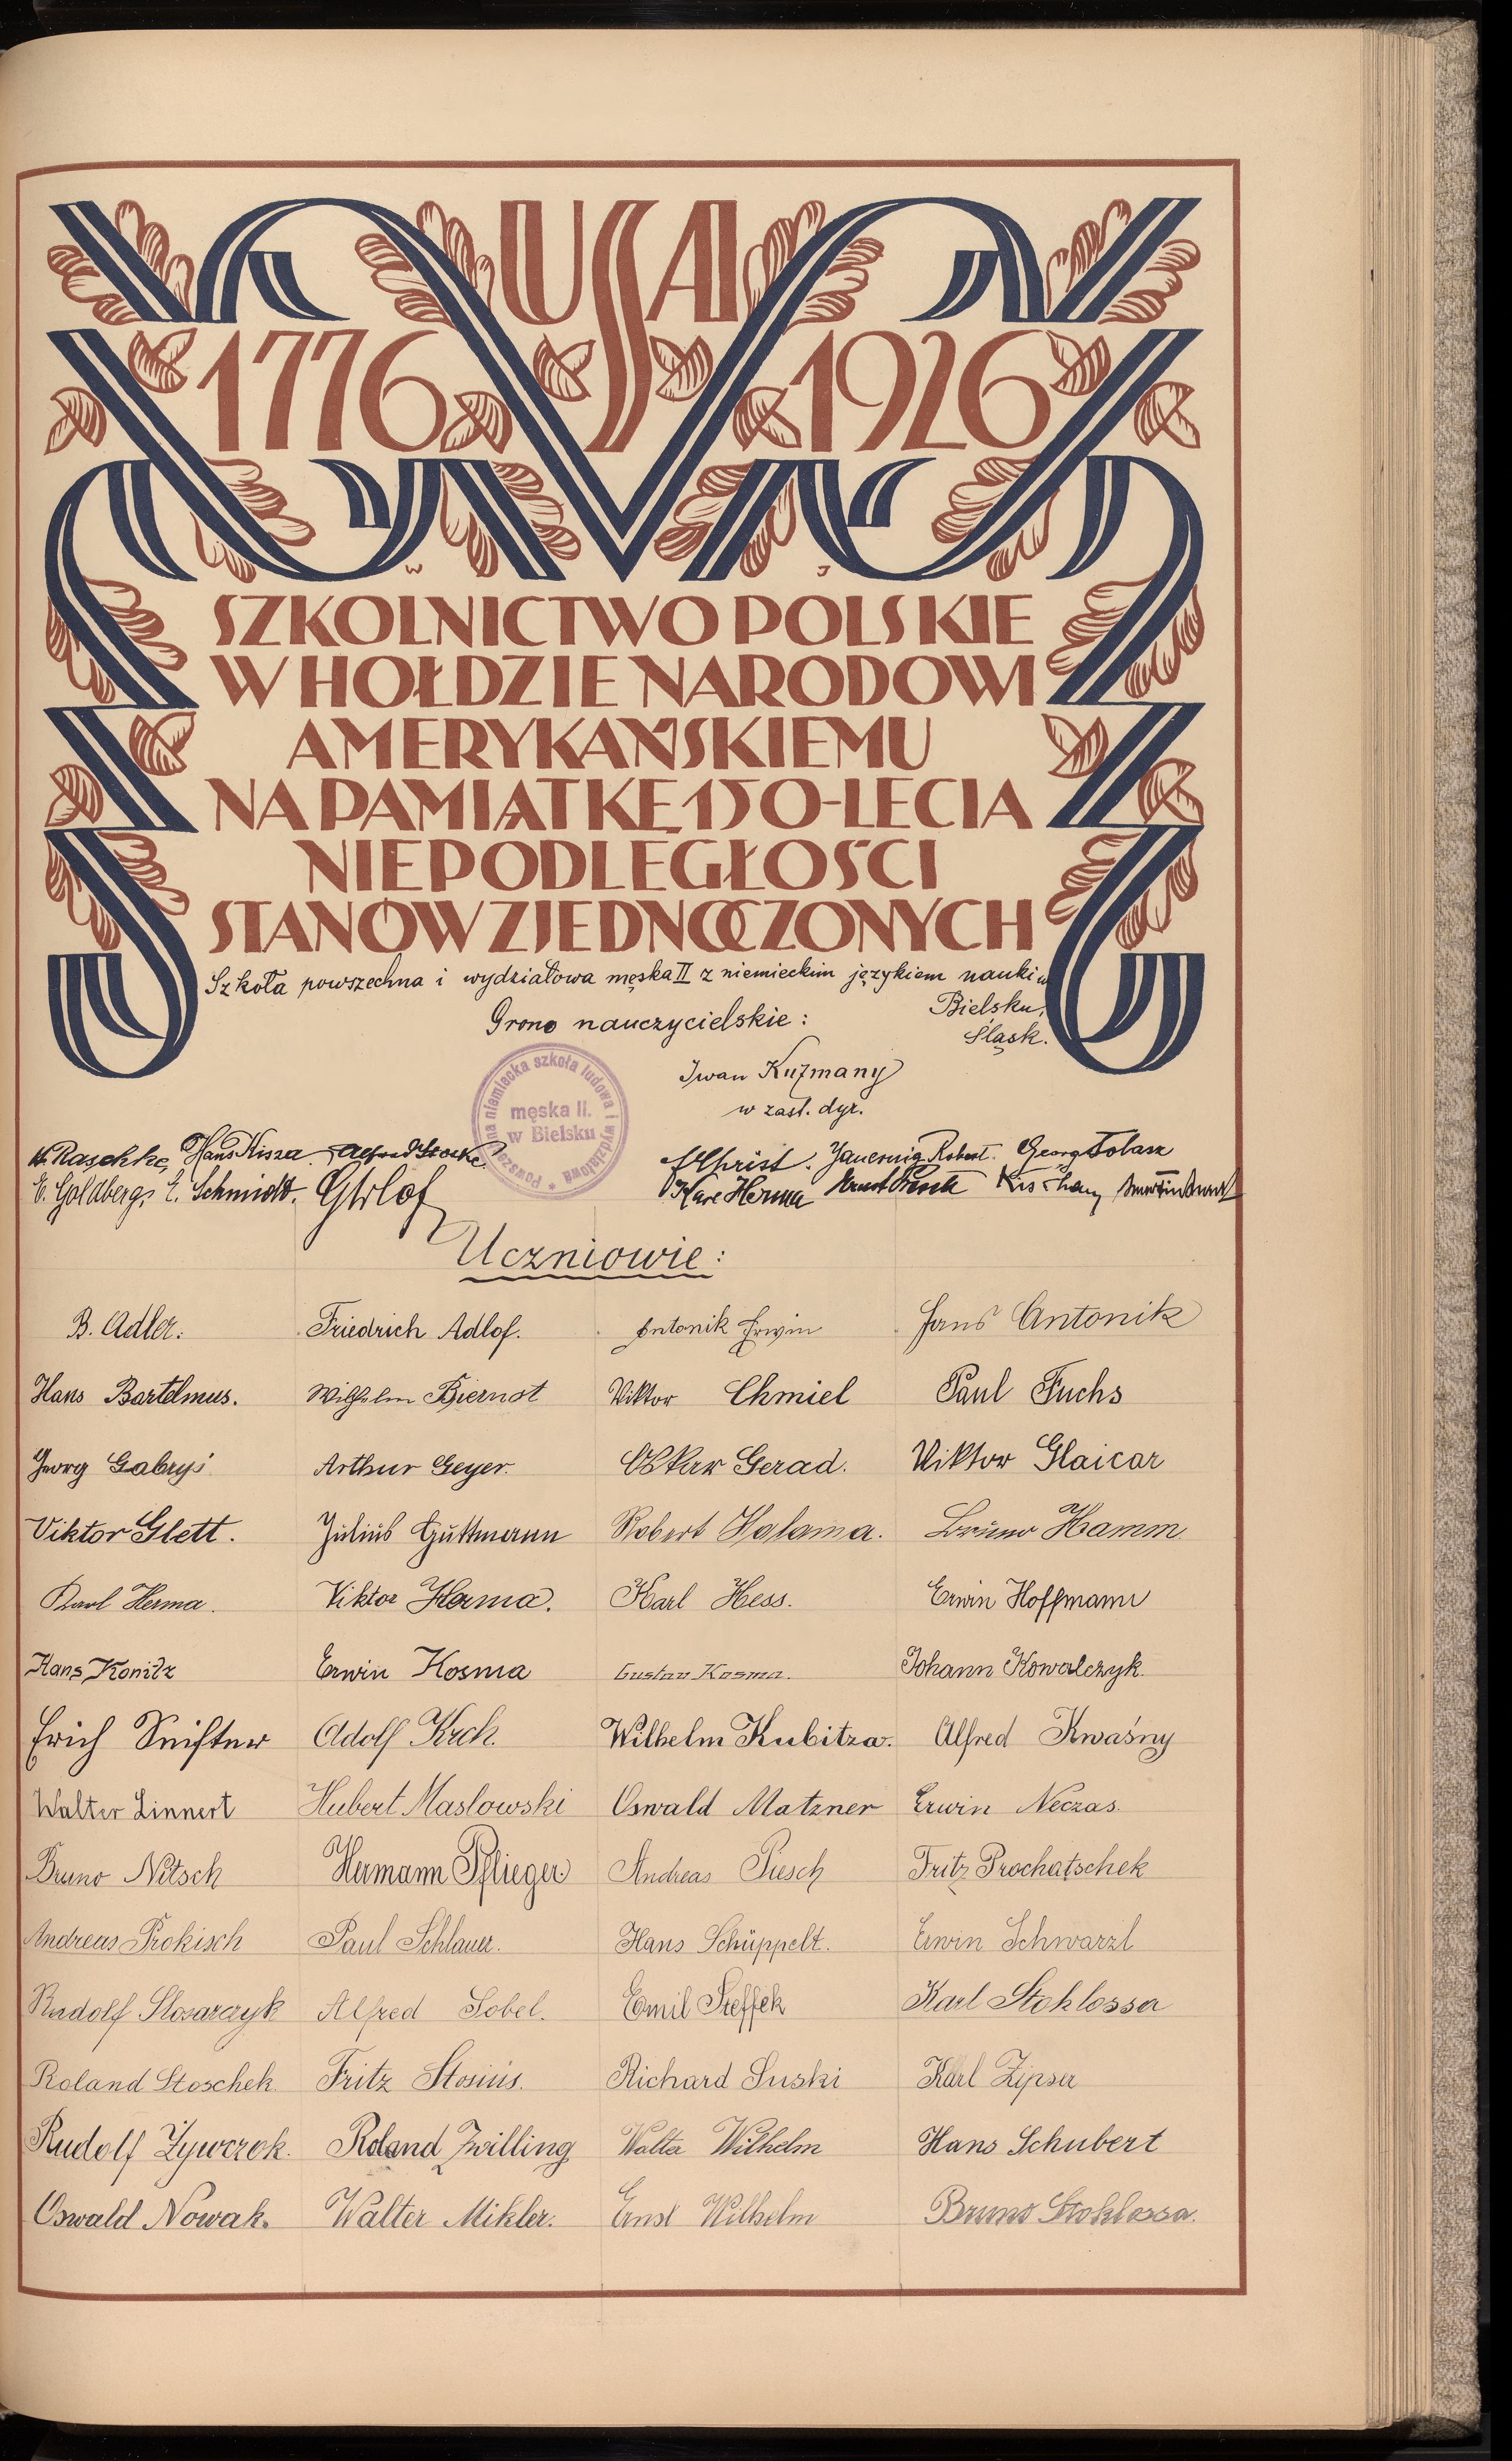 USA
1776 1926
W J
SZKOLNICTWO POLSKIE
W HOŁDZIE NARODOWI
AMERYKAŃSKIEMU
NA PAMIĄTKĘ 150-LECIA
NIEPODLEGŁOŚCI
STANÓW ZJEDNOCZONYCH
Szkoła powszechna i wydziałowa męska II z niemieckim językiem nauki w
Bielsku,
Śląsk.
Grono nauczycielskie:
Iwan Kuzmany
w zast. dyr.
niemiecka szkoła ludowa i wydziałowa
męska II.
w Bielsku
Raschke, Hans Kisza. Alfred
Christ. Robert. Georg Folasz
E. Goldberg, E. Schmidt.
Karl Herma Ernst
Uczniowie:
B. Adler. Friedrich Adlof. Antonik Erwin Hans Antonik
Hans Bartelmus. Wilhelm Biernot Viktor Chmiel Paul Fuchs
Georg Gabryś Arthur Geyer. Oskar Gerad. Viktor Glaicar
Viktor Glett. Julius Guttmann Robert Halama. Bruno Hamm
Karl Herma. Viktor Herma. Karl Hess. Erwin Hoffmann
Hans Konitz Erwin Kosma Gustav Kosma. Johann Kowalczyk.
Erich Adolf Krch. Wilhelm Kubitza. Alfred Kwaśny
Walter Linnert Hubert Maslowski Oswald Matzner Erwin Neczas.
Bruno Nitsch Hermann Pflieger. Andreas Piesch Fritz Prochatschek
Andreas Prokisch Paul Schlauer. Hans Schüppelt. Erwin Schwarzl
Rudolf Slosarczyk Alfred Sobel. Emil Steffek Karl Stoklossa
Roland Stoschek Fritz Stosius. Richard Suski Karl Zipser
Rudolf Żywczok. Roland Zwilling Walter Wilhelm Hans Schubert
Oswald Nowak. Walter Mikler. Ernst Wilhelm Bruno Stoklossa.